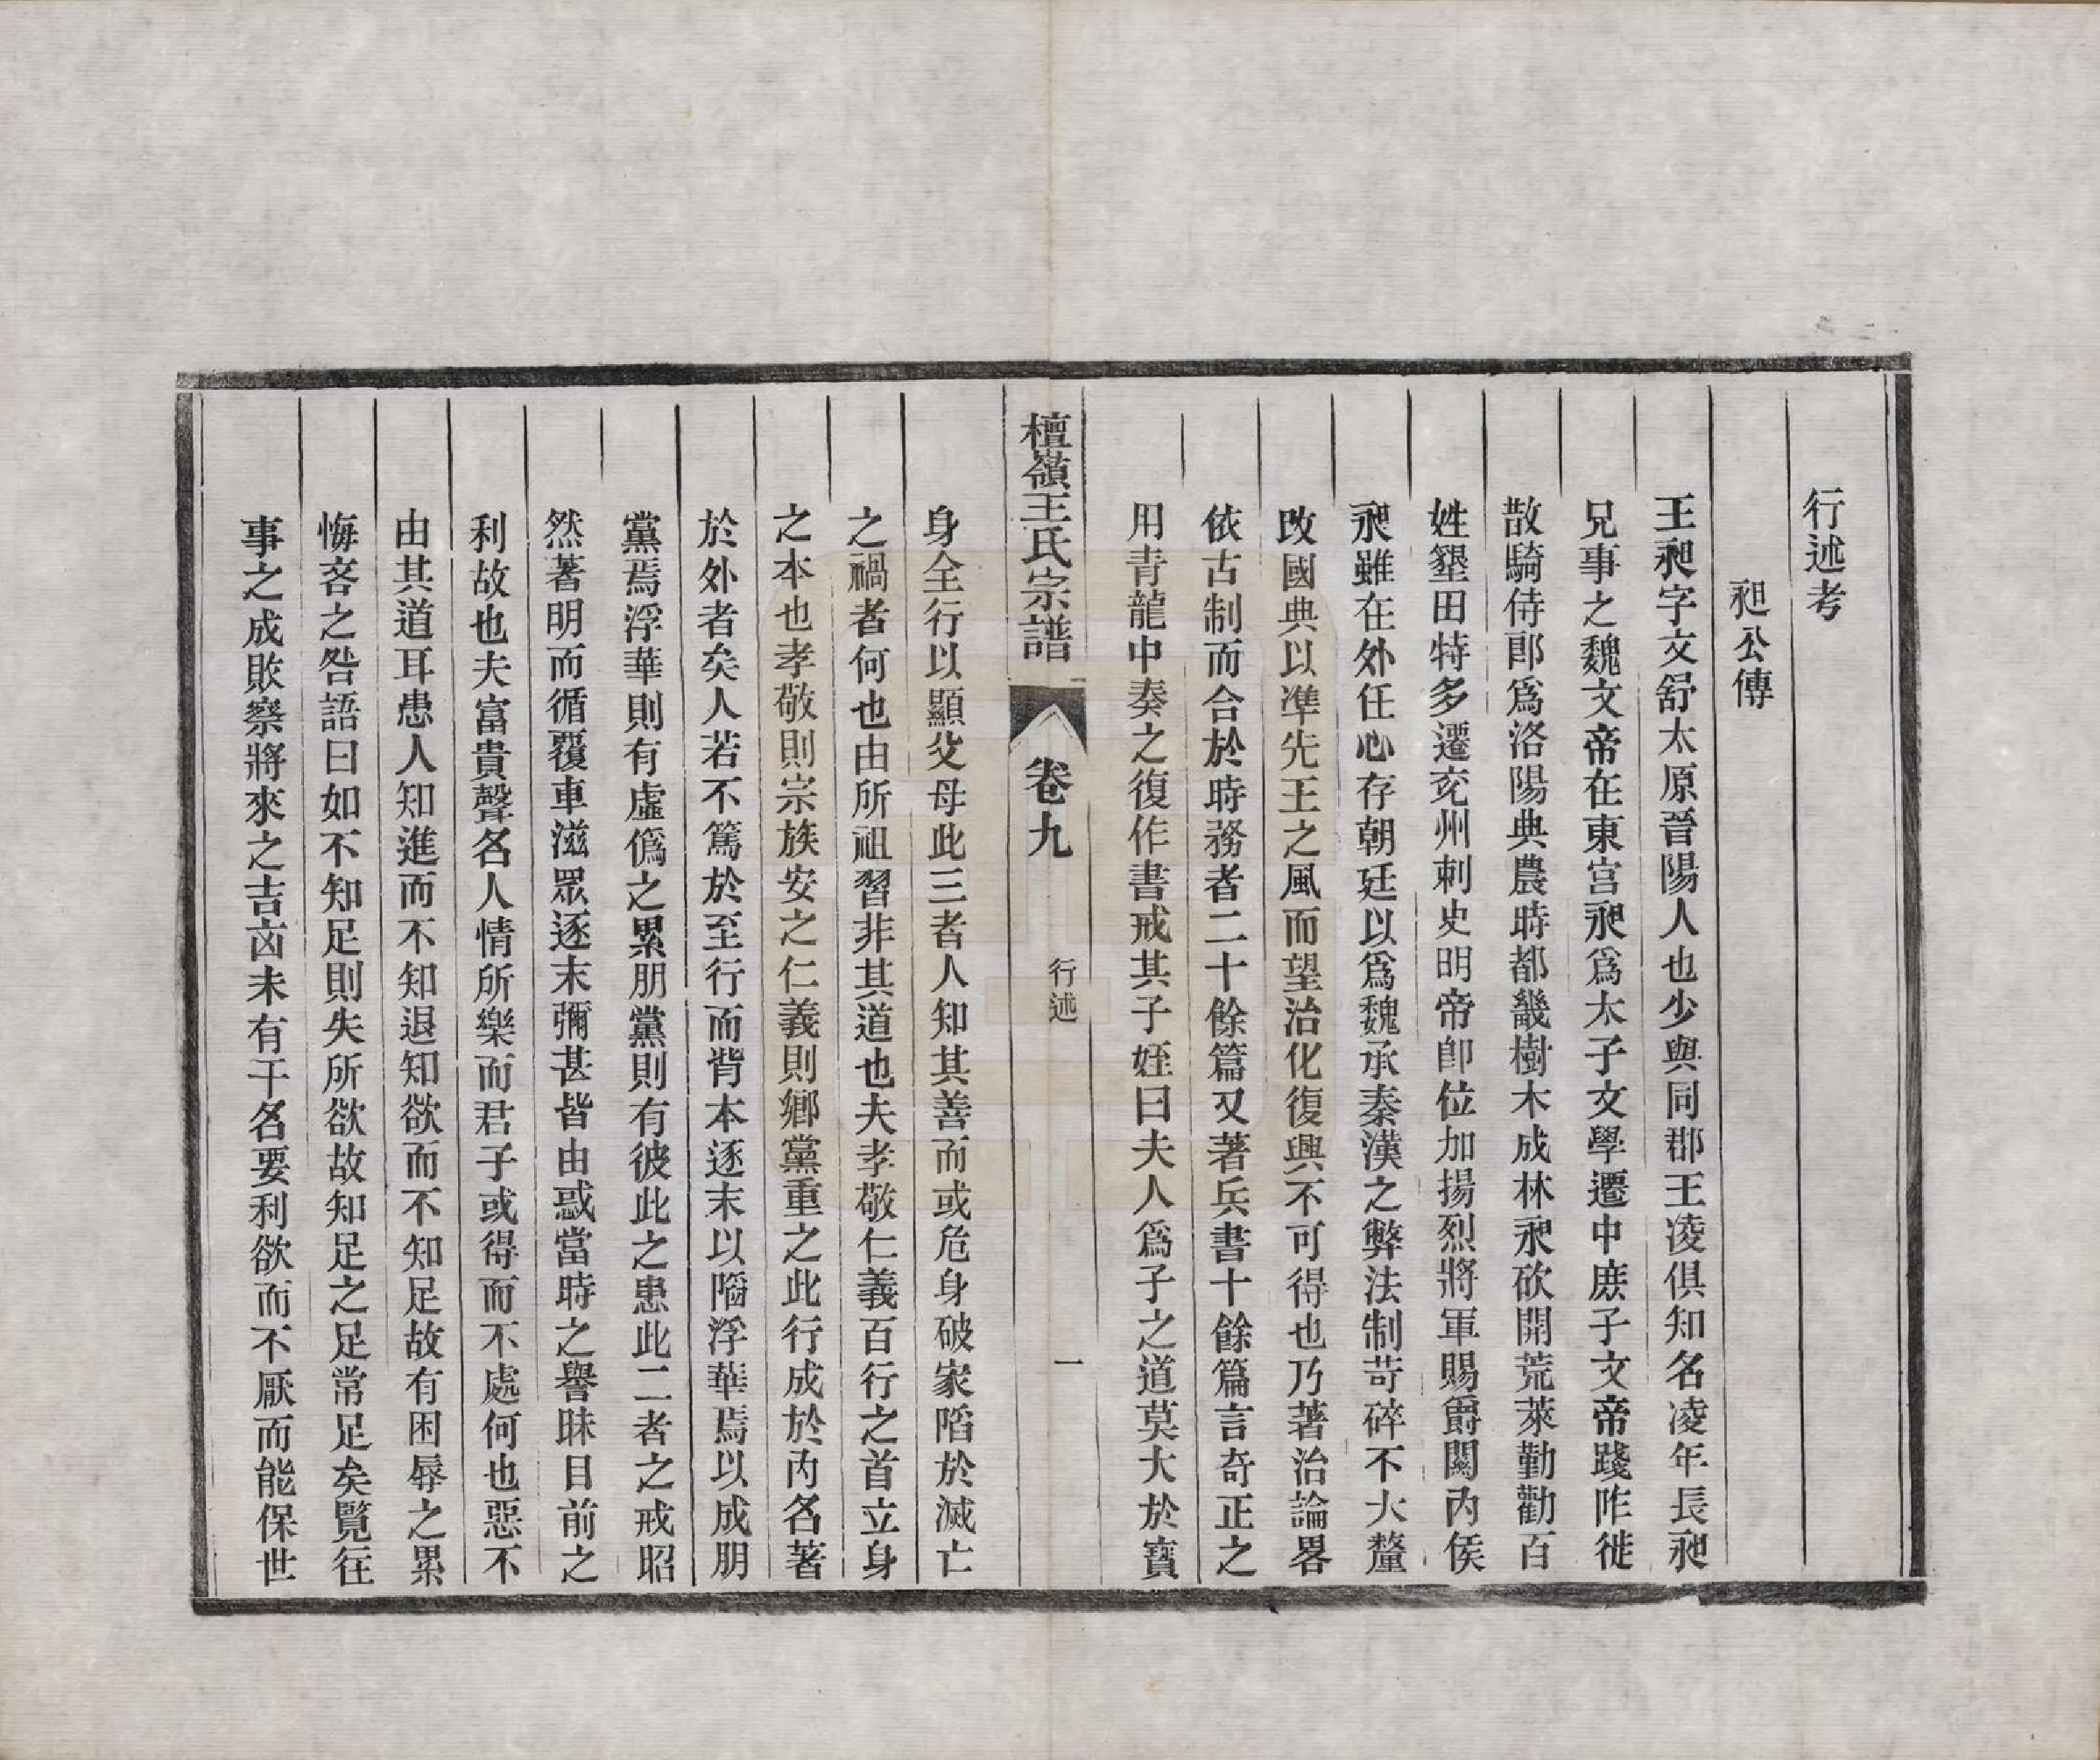 行述考
昶公傳
王昶字文舒太原晉陽人也少與同郡王凌俱知名凌年長昶
兄事之魏文帝在東宮昶爲太子文學遷中庶子文帝踐阼徙
散騎侍郎爲洛陽典農時都畿樹木成林昶砍開荒萊勤勸百
姓墾田特多遷兖州刺史明帝即位加揚烈將軍賜爵關內侯
昶雖在外任心存朝廷以爲魏承秦漢之弊法制苛碎不大釐
改國典以準先王之風而望治化復興不可得也乃著治論畧
依古制而合於時務者二十餘篇又著兵書十餘篇言奇正之
用青龍中奏之復作書戒其子姪曰夫人爲子之道莫大於寶
檀嶺王氏宗譜 卷九 行述 一
身全行以顯父母此三者人知其善而或危身破家陷於滅亡
之禍者何也由所祖習非其道也夫孝敬仁義百行之首立身
之本也孝敬則宗族安之仁義則鄉黨重之此行成於內名著
於外者矣人若不篤於至行而背本逐末以陷浮華焉以成朋
黨焉浮華則有虛僞之累朋黨則有彼此之患此二者之戒昭
然著明而循覆車滋眾逐末彌甚皆由惑當時之譽昧目前之
利故也夫富貴聲名人情所樂而君子或得而不處何也惡不
由其道耳患人知進而不知退知欲而不知足故有困辱之累
悔吝之咎語曰如不知足則失所欲故知足之足常足矣覽往
事之成敗察將來之吉凶未有干名要利欲而不厭而能保世